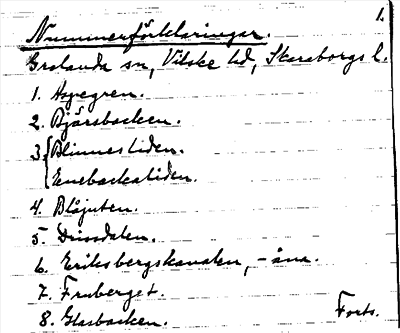 1.
Nummerförklaringar.
Grolanda sn, Vilske hd, Skaraborgs l.
1. Aspegren.
2. Bjärsbacken.
3 { Blinnestiden.
Enebackatiden.
4. Blåjuten.
5. Dissdalen.
6. Eriksbergskanalen, -åna.
7. Fruberget.
8. Glasbacken.
Forts.